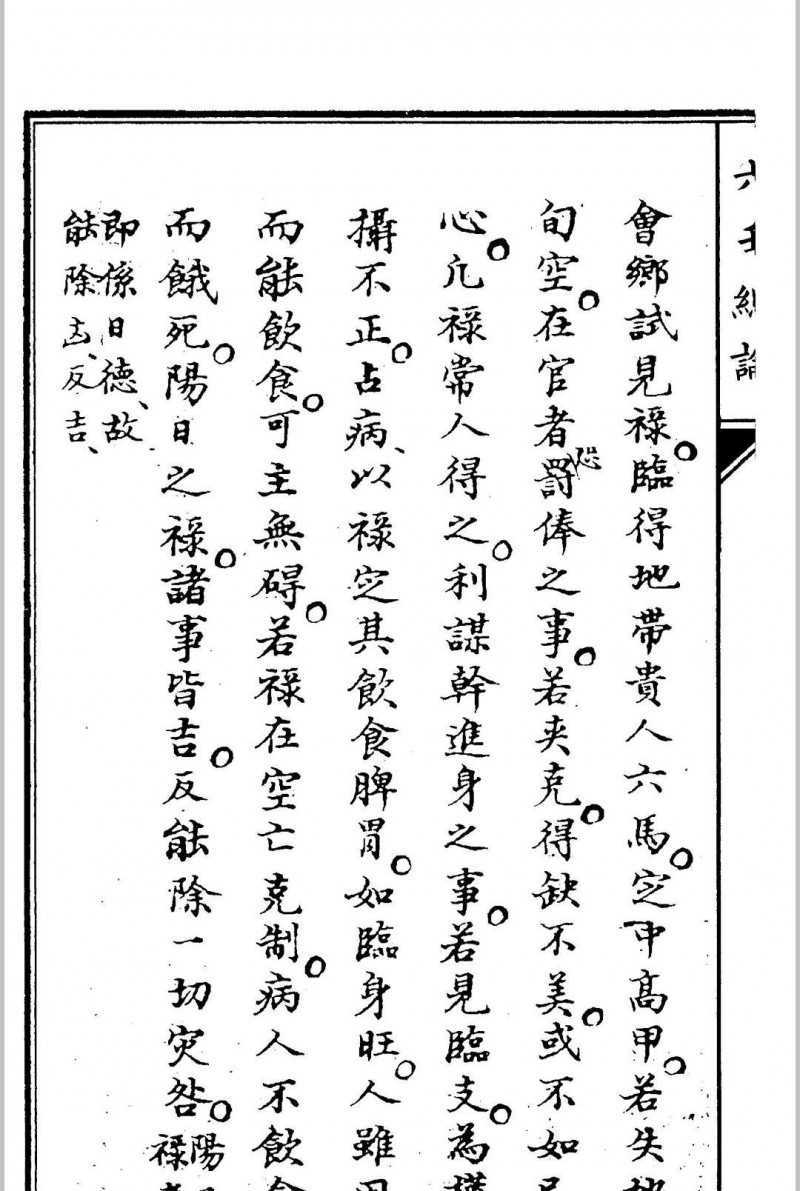 六壬總論
會鄉試見祿。臨得地帶貴人六馬。定中高甲。若失地
旬空。在官者恐罰俸之事。若夾克。得缺不美。或不如
心。凡祿常人得之。利謀幹進身之事。若見臨支。為權
攝不正。占病、以祿定其飲食脾胃。如臨身旺。人雖
而能飲食。可主無碍。若祿在空亡克制。病人不飲食
而餓死。陽日之祿。諸事皆吉。反能除一切灾咎。陽
祿
即係日德、故
能除凶、反吉、